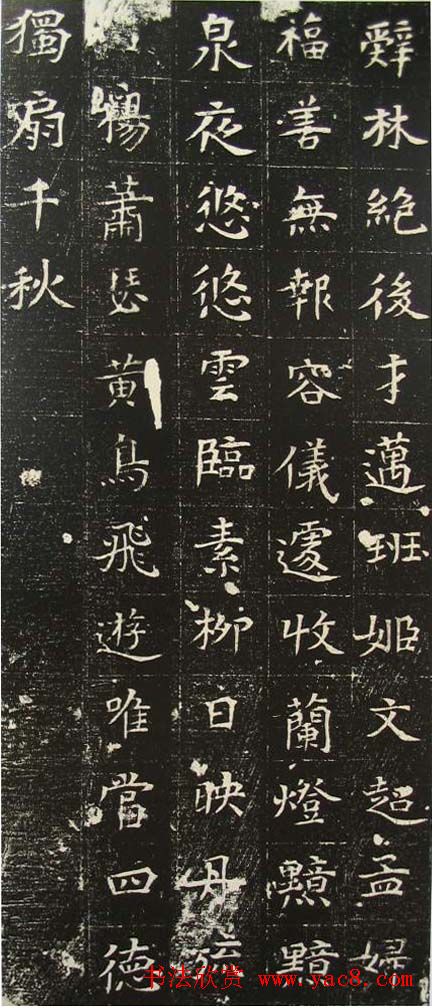 辤林絕後才邁班姬文超孟婦
福善無報容儀遽收蘭燈黯黯
泉夜悠悠雲臨素柳日映丹
楊蕭瑟黃鳥飛遊唯當四德
獨扇千秋
书法欣赏 www.yac8.com